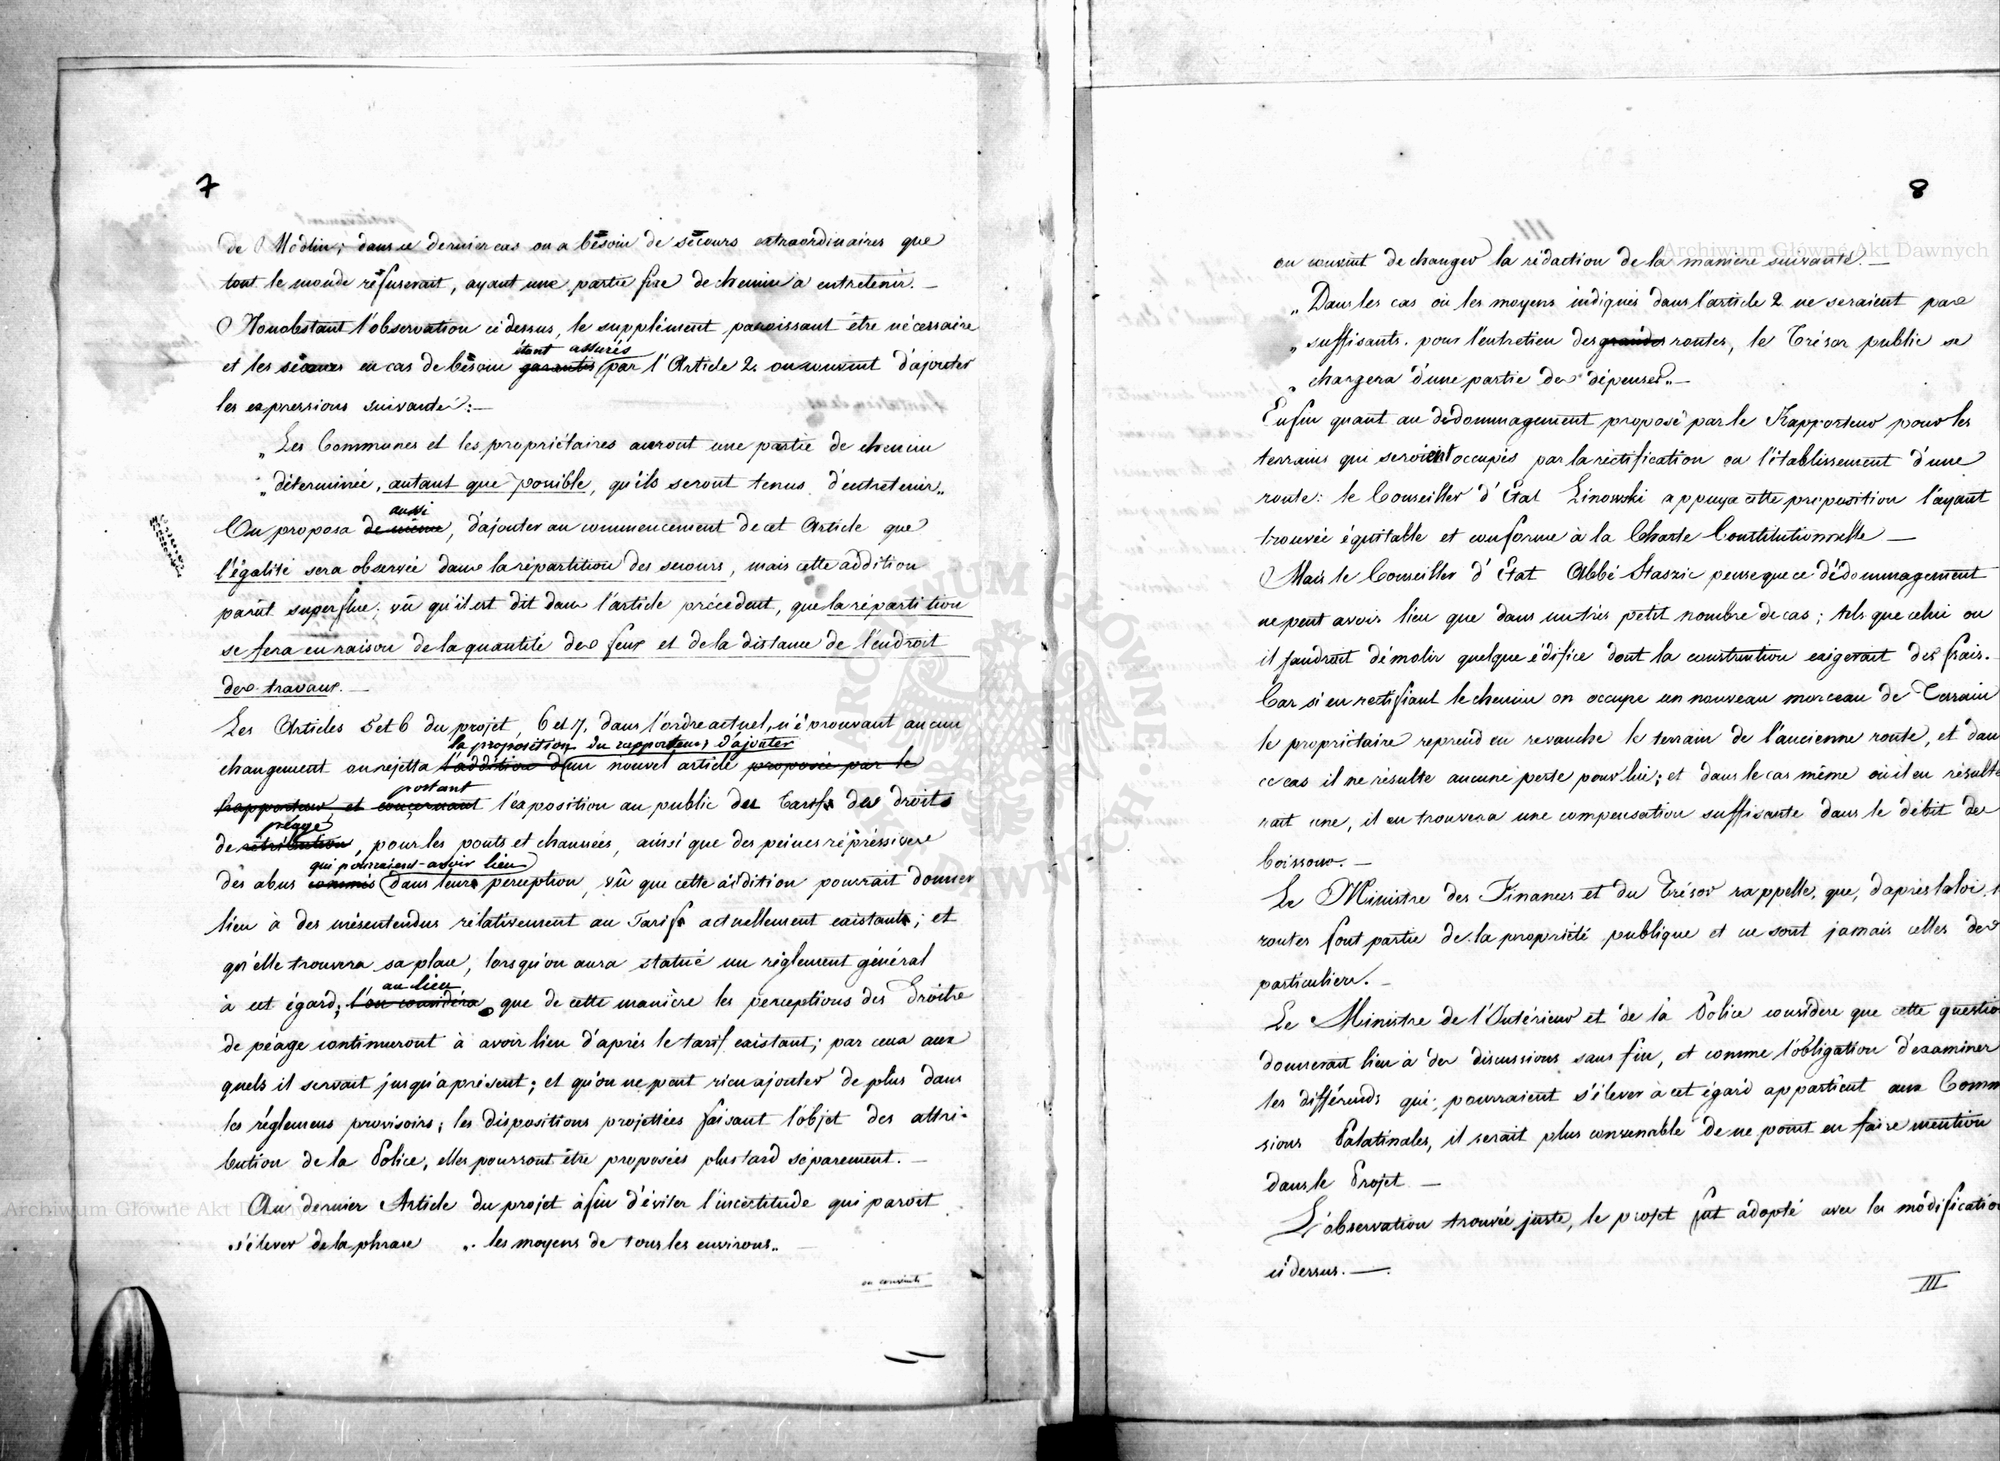 7
de Modlin; dans ce dernier cas on a bésoin de sécours extraordinaires que
tout le monde réfuserait, ayant une partie fixe de chemin à entretenir. —
Nonobstant l'observation ci dessus, le supplément paroissant être nécessaire
étant assurés
et les sécours en cas de bésoin garantis par l'Article 2. on convint d'ajouter
les expressions suivantes: —
„Les Communes et les propriétaires auront une partie de chemin
„déterminée, autant que possible, qu'ils seront tenus d'entretenir„
aussi
On proposa de même, d'ajouter au commencement de cet Article que
l'égalité sera observée dans la répartition des secours, mais cette addition
parût superflue; vû qu'il est dit dans l'article précédent, que la répartition
se fera en raison de la quantité des feux et de la distance de l'endroit
des travaux. —
Les Articles 5 et 6 du projet, 6 et 7, dans l'ordre actuel, n'éprouvant aucun
la proposition du rapporteur d'ajouter
changement on rejetta l'addition d'un nouvel article proposée par le
portant
Rapporteur et concernant l'exposition au public des Tarifs des droits
péage
de rétribution, pour les ponts et chaussées, ainsi que des peines répréssives
qui pourraient avoir lieu
des abus commis dans leurs perception, vû que cette addition pourrait donner
lieu à des mésentendus rélativement au Tarifs actuellement existants; et
qu'elle trouvera sa place, lorsqu'on aura statué un réglement général
au lieu
à cet égard; l'on considéra que de cette manière les perceptions des Droits
de péage continueront à avoir lieu d'après le tarif existant; par ceux aux
quels il servait jusqu'à présent; et qu'on ne peut rien ajouter de plus dans
les réglemens provisoirs; les dispositions projettées faisant l'objet des attri-
bution de la Police, elles pourront être proposées plus tard séparement. —
Au dernier Article du projet àfin d'éviter l'incertitude qui paroit
s'élever de la phrase „les moyens de tous les environs„
on convint
8
on convint de changer la rédaction de la manière suivante. —
„Dans les cas où les moyens indiqués dans l'article 2 ne seraient pas
„suffisants pour l'entretien des grandes routes, le Trésor public se
„chargera d'une partie des dépenses„ —
Enfin quant au dédommagement proposé par le Rapporteur pour les
terrains qui seroient occupés par la réctification ou l'établissement d'une
route: le Conseiller d'État Linowski appuya cette proposition l'ayant
trouvée équitable et conforme à la Charte Constitutionnelle —
Mais le Conseiller d'État Abbé Staszic pense que ce dédommagement
ne peut avoir lieu que dans un très petit nombre de cas; tels que celui ou
il faudrait démolir quelque édifice dont la construction exigerait des frais.
Car si en rectifiant le chemin on occupe un nouveau morceau de Terrain
le propriétaire reprend en revanche le terrain de l'ancienne route, et dan
ce cas il ne résulte aucune perte pour lui; et dans le cas même où il en résulte
rait une, il en trouvera une compensation suffisante dans le débit des
boissons. —
Le Ministre des Finances et du Trésor rappelle, que, d'après la loi,
routes font partie de la propriété publique et ne sont jamais celles des
particuliers. —
Le Ministre de l'Intérieur et de la Police considère que cette questio
donnerait lieu à des discussions sans fin, et comme l'obligation d'examiner
les différends qui pourraient s'élever à cet égard appartient aux Comm
sions Palatinales, il serait plus convenable de ne point en faire mention
dans le Projet —
L'observation trouvée juste, le projet fût adopté avec les modificatio
ci dessus. —
III